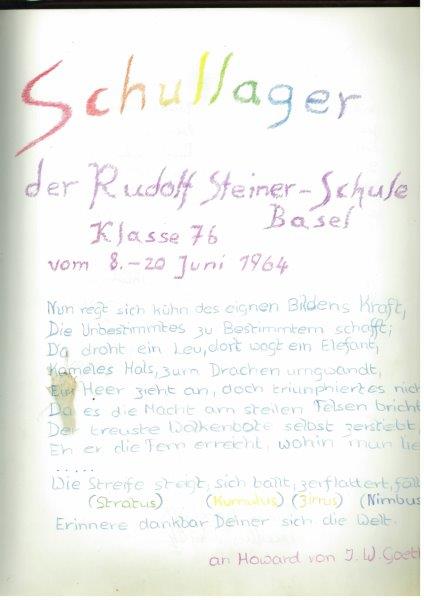 Schullager
der Rudolf Steiner-Schule
Basel
Klasse 7b
vom 8.-20 Juni 1964
Nun regt sich kühn des eignen Bildens Kraft,
Die Unbestimmtes zu Bestimmtem schafft;
Da droht ein Leu, dort wogt ein Elefant,
Kameles Hals, zum Drachen umgwandt,
Ein Heer zieht an, doch triumphiertes nich
Da es die Macht am steilen Felsen bricht
Der treuste Wolkenbote selbst zerstiebt
Eh er die Fern erreicht, wohin man lie
.....
Wie Streife steigt, sich ballt, zerflattert, fäll
(Stratus) (Kumulus) (Zirrus) (Nimbus
Erinnere dankbar Deiner sich die Welt.
an Howard von J. W. Goet